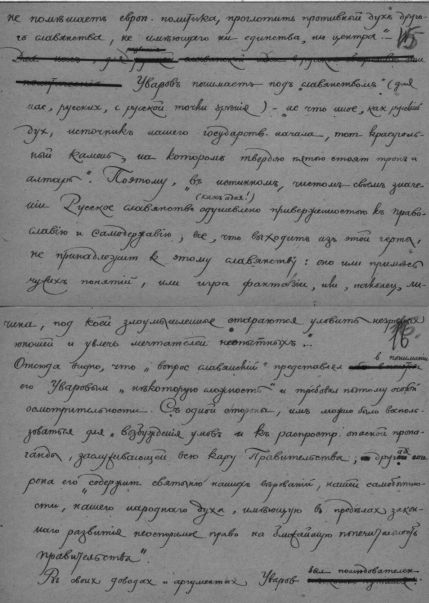 не помѣшаетъ европ. политика, проглотитъ противной духъ друг-
гъ славянства, не имѣющаго ни единства, ни центра".
Уваровъ понимаетъ подъ „славянствомъ" (для
нас, русских, с русской точки зрѣнія) – „не что иное, как русский
дух, источникъ нашего государств. начала, тот краеуголь-
ный камень, на котором твердою пятою стоят трон и
алтарь". Поэтому, „въ истинном, чистом своем значе-
(какъ идея!)
ніи Русское славянство одушевлено приверженностью къ право-
славію и самодержавію; все, что выходит изъ этой черты,
не принадлежит к этому славянству: оно или примѣсь
чужих понятий, или игра фантазіи, или, наконец, ли-
чина, под коей злоумышленные стараются уловить
юношей и увлечь мечтателей неопытныхъ".
Отсюда видно, что „вопрос славянский" представлял
в понимании
его Уваровым „нѣкоторую сложность" и требовал потому особой
осмотрительности. Съ одной стороны, им можно было восполь-
зоваться для „возбужденія умов и къ распростр. опасной пропа-
ганды, заслуживающей всю кару Правительства", другая сто-
рона его „содержит святыню наших вѣрований, нашей самобытно-
сти, нашего народнаго духа, имѣющую въ предѣлах закон-
наго развитія неоспоримое право на ближайшую попечительность
правительства".
Въ своих доводах и аргументах Уваров был